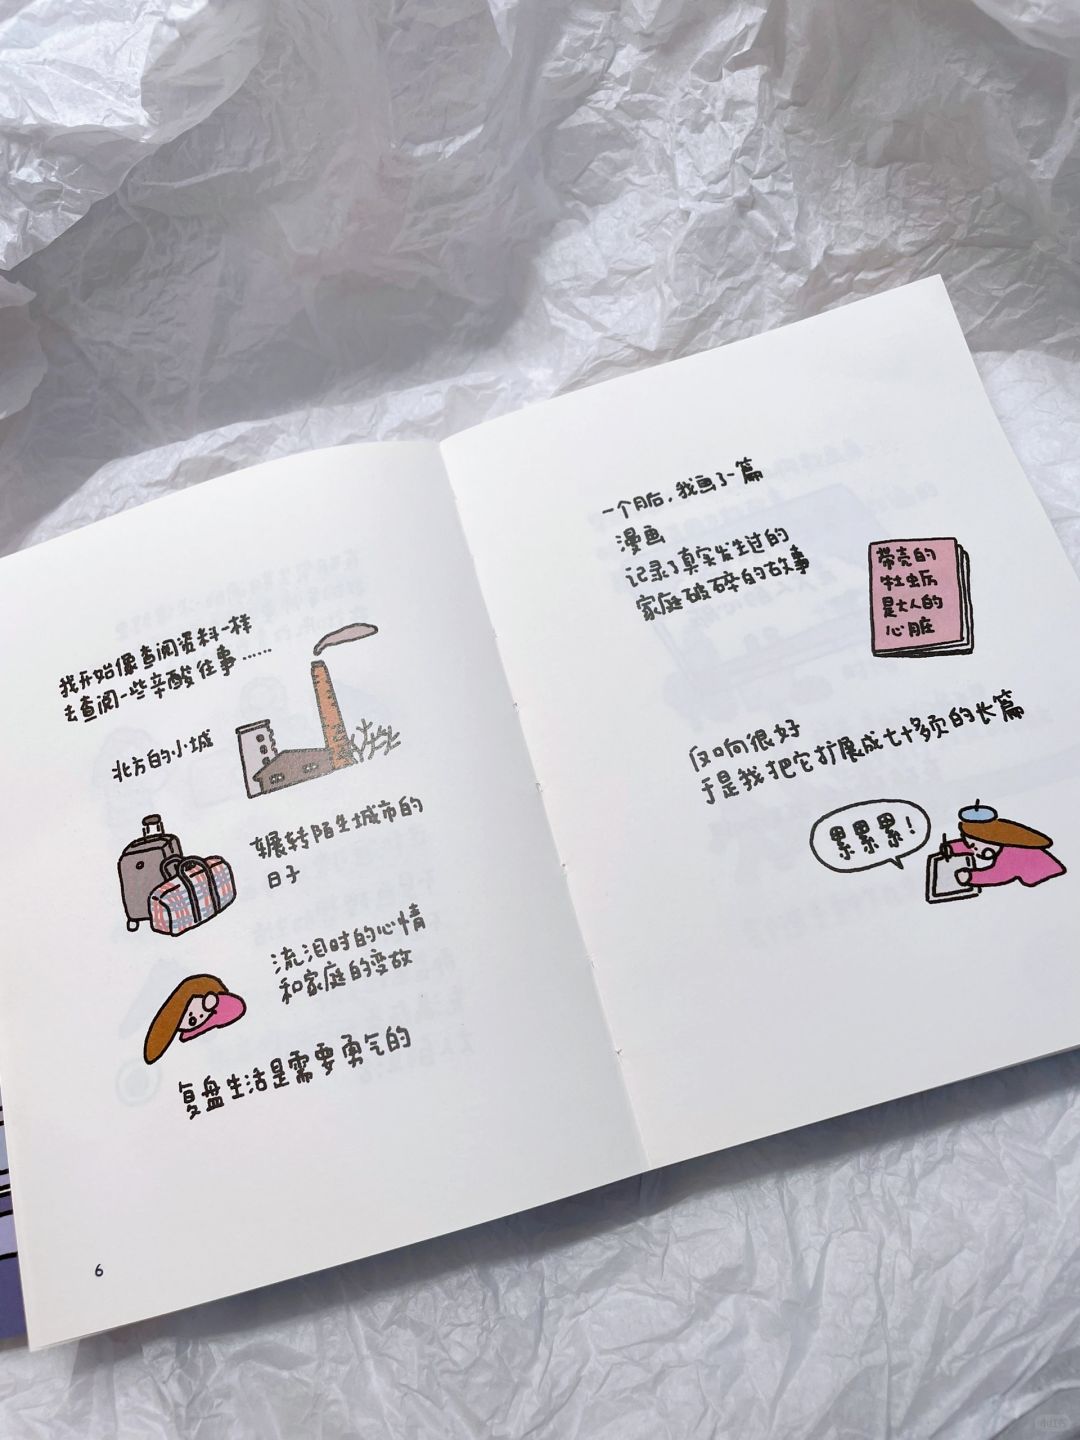 我开始像查阅资料一样
去查阅一些辛酸往事……
北方的小城
辗转陌生城市的
日子
流泪时的心情
和家庭的变故
复盘生活是需要勇气的
6
一个月后，我画了一篇
漫画
记录了真实发生过的
家庭破碎的故事
带壳的
牡虫厉
是大人的
心脏
反响很好
于是我把它扩展成七十多页的长篇
累累累！
小红书